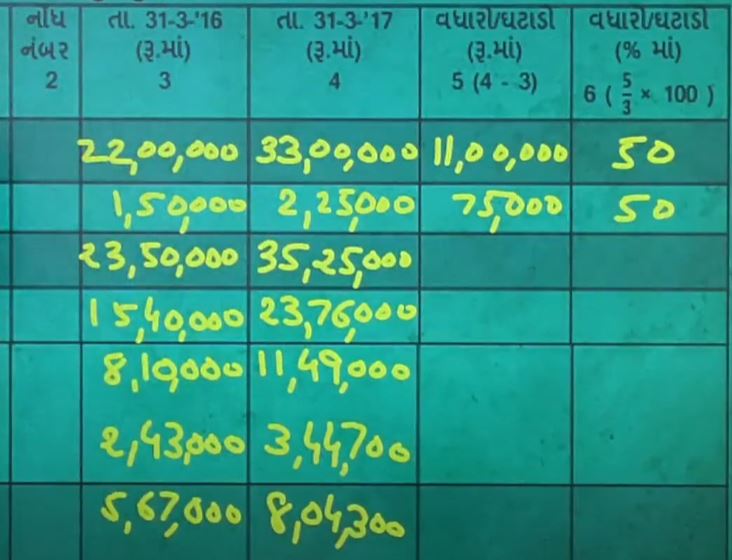 નોંધ નંબર 2 | તા. 31-3-'16 (રૂ.માં) 3 | તા. 31-3-'17 (રૂ.માં) 4 | વધારો/ઘટાડો (રૂ.માં) 5 (4 - 3) | વધારો/ઘટાડો (% માં) 6 ( 5/3 × 100 )
22,00,000 33,00,000 11,00,000 50
1,50,000 2,25,000 75,000 50
23,50,000 35,25,000
15,40,000 23,76,000
8,10,000 11,49,000
2,43,000 3,44,700
5,67,000 8,04,300